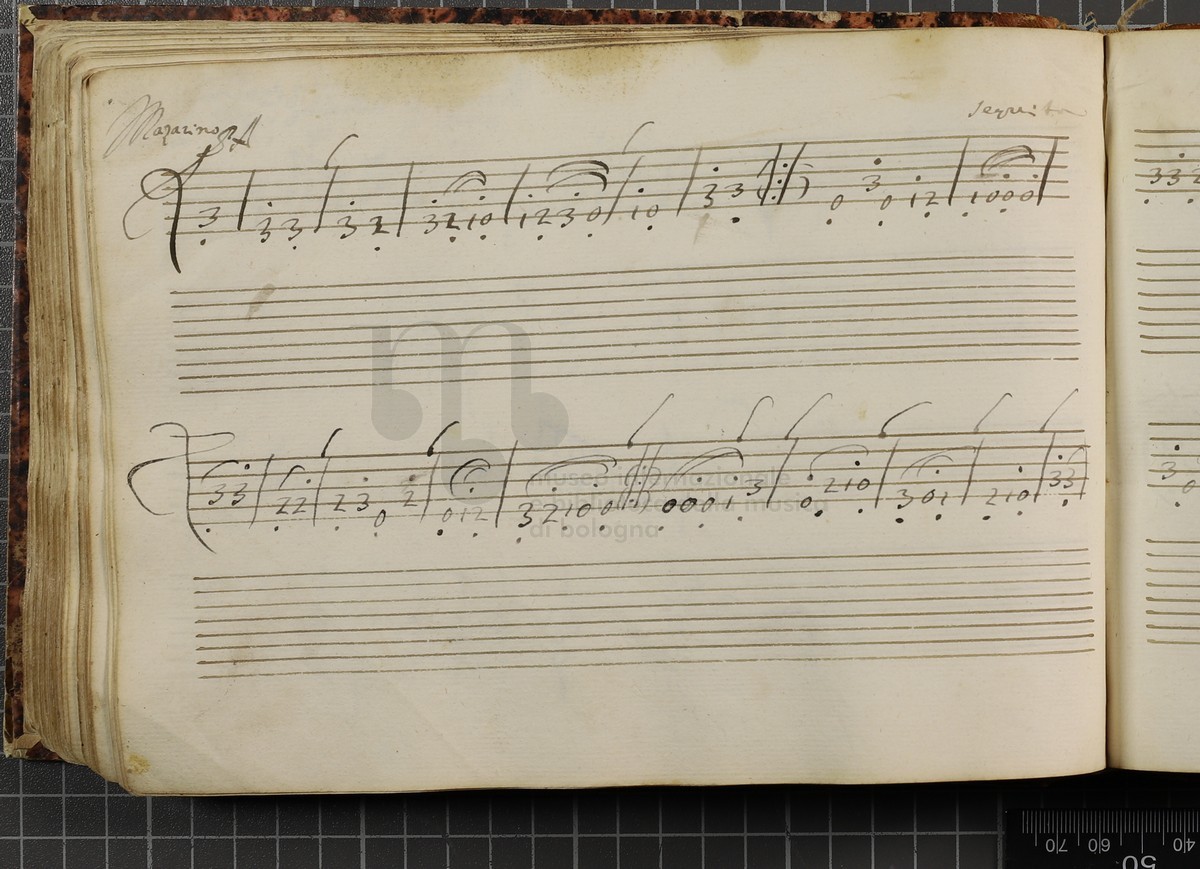 Mazarino
3 3 3 3 2 3 2 1 0 1 2 3 0 1 0 3 3 0 3 0 1 2 1 0 0 0
3 3 2 2 2 3 0 2 0 1 2 3 2 1 0 0 0 0 0 1 3 0 2 1 0 3 0 1 2 1 0 3 3
museo internazionale
e biblioteca della musica
di bologna
3 3 2
3 0
70 60 50 40